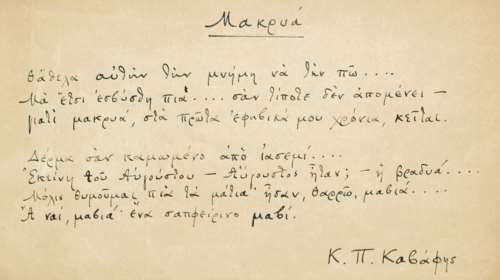 Μακρυά
Θάθελα αυτήν την μνήμη νά την πω....
Μά έτσι εσβύσθη πιά.... σαν τίποτε δεν απομένει —
γιατί μακρυά, στά πρώτα εφηβικά μου χρόνια, κείται.
Δέρμα σαν καμωμένο από ιασεμί....
Εκείνη του Αυγούστου — Αύγουστος ήταν; — η βραδυά....
Μόλις θυμούμαι πιά τά μάτια· ήσαν, θαρρώ, μαβιά....
Ά ναί, μαβιά· ένα σαπφείρινο μαβί.
Κ. Π. Καβάφης